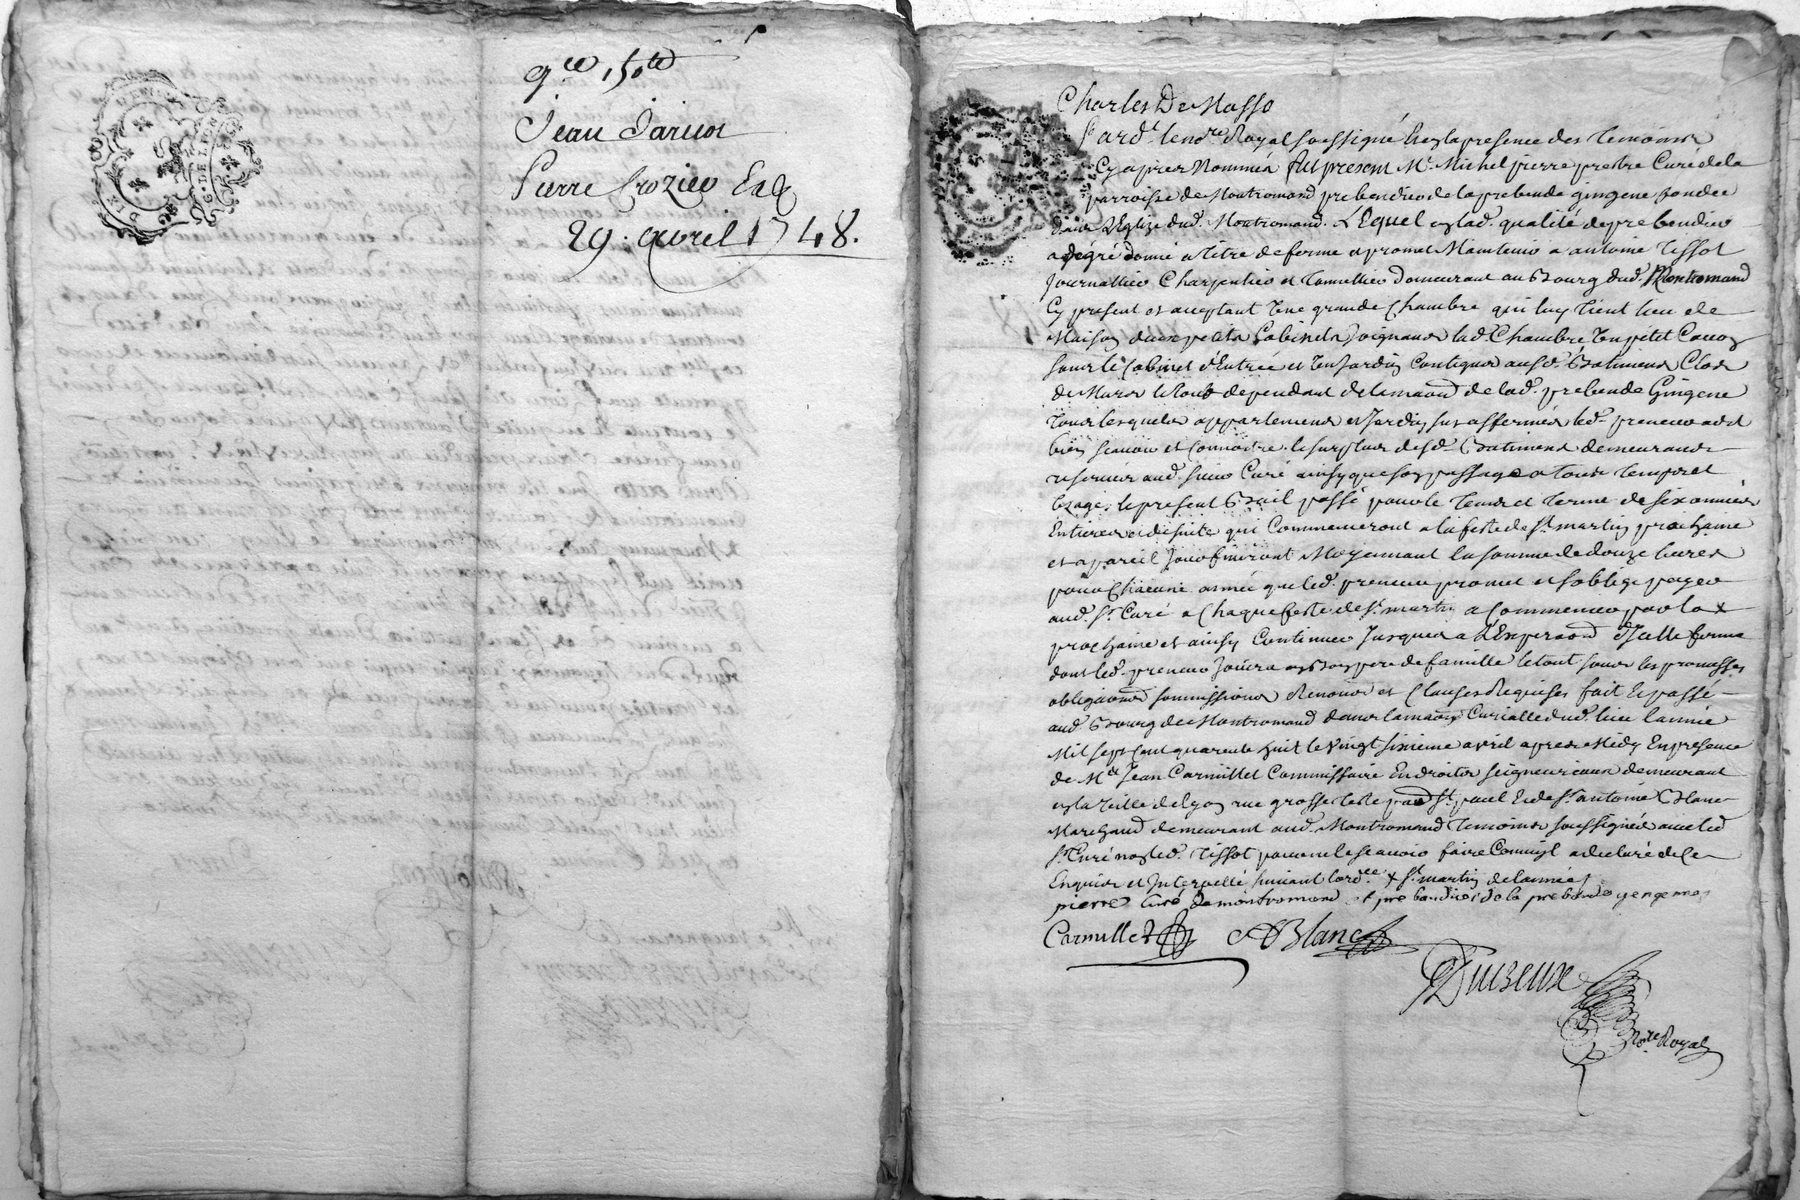 Jean
Pierre Crozier
29. avril 1748.
Charles De Masso
Pard.t le no.re Royal soussigné & en la presence des temoins
Cy apres Nommés fut present M.e Michel pierre prestre Curé de la
parroisse de Montromand prebendier de la prebende gingene fondée
dans L'Eglize dud. Montromand. LEquel en lad. qualité de prebendier
a degré donné a titre de ferme et promet Maintenir a antoine Tissot
Journallier Charpentier et Tonnellier demeurant au Bourg dud. Montromand
Cy present et acceptant Une grande Chambre qui luy tient lieu de
Maison deux petits Cabinets Joignans lad. Chambre Un petit
sous le Cabinet d'Entrée et Un Jardin Contigue ausd. Batimens Clos
de Murs le tout dependant de la maison de lad. prebende Gingene
Tous lesquels appartements et Jardin sus affermés led. preneur a dit
bien scavoir et Connoitre. le surplus desd. Batimens demeurant
reservés aud. sieur Curé ainsy que son passage a tous temps et
Uzage, le present Bail passé pour le temps et terme de six années
Entieres et de suite qui Commenceront a la feste de S.t martin prochaine
et a pareil Jour finiront Moyennant la somme de douze livres
pour Chacune année que led. preneur promet et soblige payer
aud. S.r Curé a Chaque feste de S.t martin a Commencer par la x
prochaine et ainsy Continuer Jusques a L'Expiraon d'Icelle ferme
dont led. preneur Jouira en Bon pere de famille le tout sous les promesses
obligaons soumissions Renonons et Clauses Requises fait et passé
aud. Bourg de Montromand dans la maison Curialle dud. lieu lannée
Mil sept Cent quarente huit le Vingt sixieme avril apres Midy En presence
de M.re Jean Carmillet Commissaire En droits seigneuriaux demeurant
en la Ville de Lyon rue grosse teste par.sse S.t paul Et de S.r antoine Blanc
Marchand demeurant aud. Montromand temoins soussignés avec led
S.r Curé non led. Tissot pour ne le scavoir faire adeclaré de ce
Enquis et Interpellé suivant lord.ce x S.t martin de lannée
pierre curé de montromand et prebandier de la prebande gengene
Carmillet A Blanc
Duizeux
No.re Royal